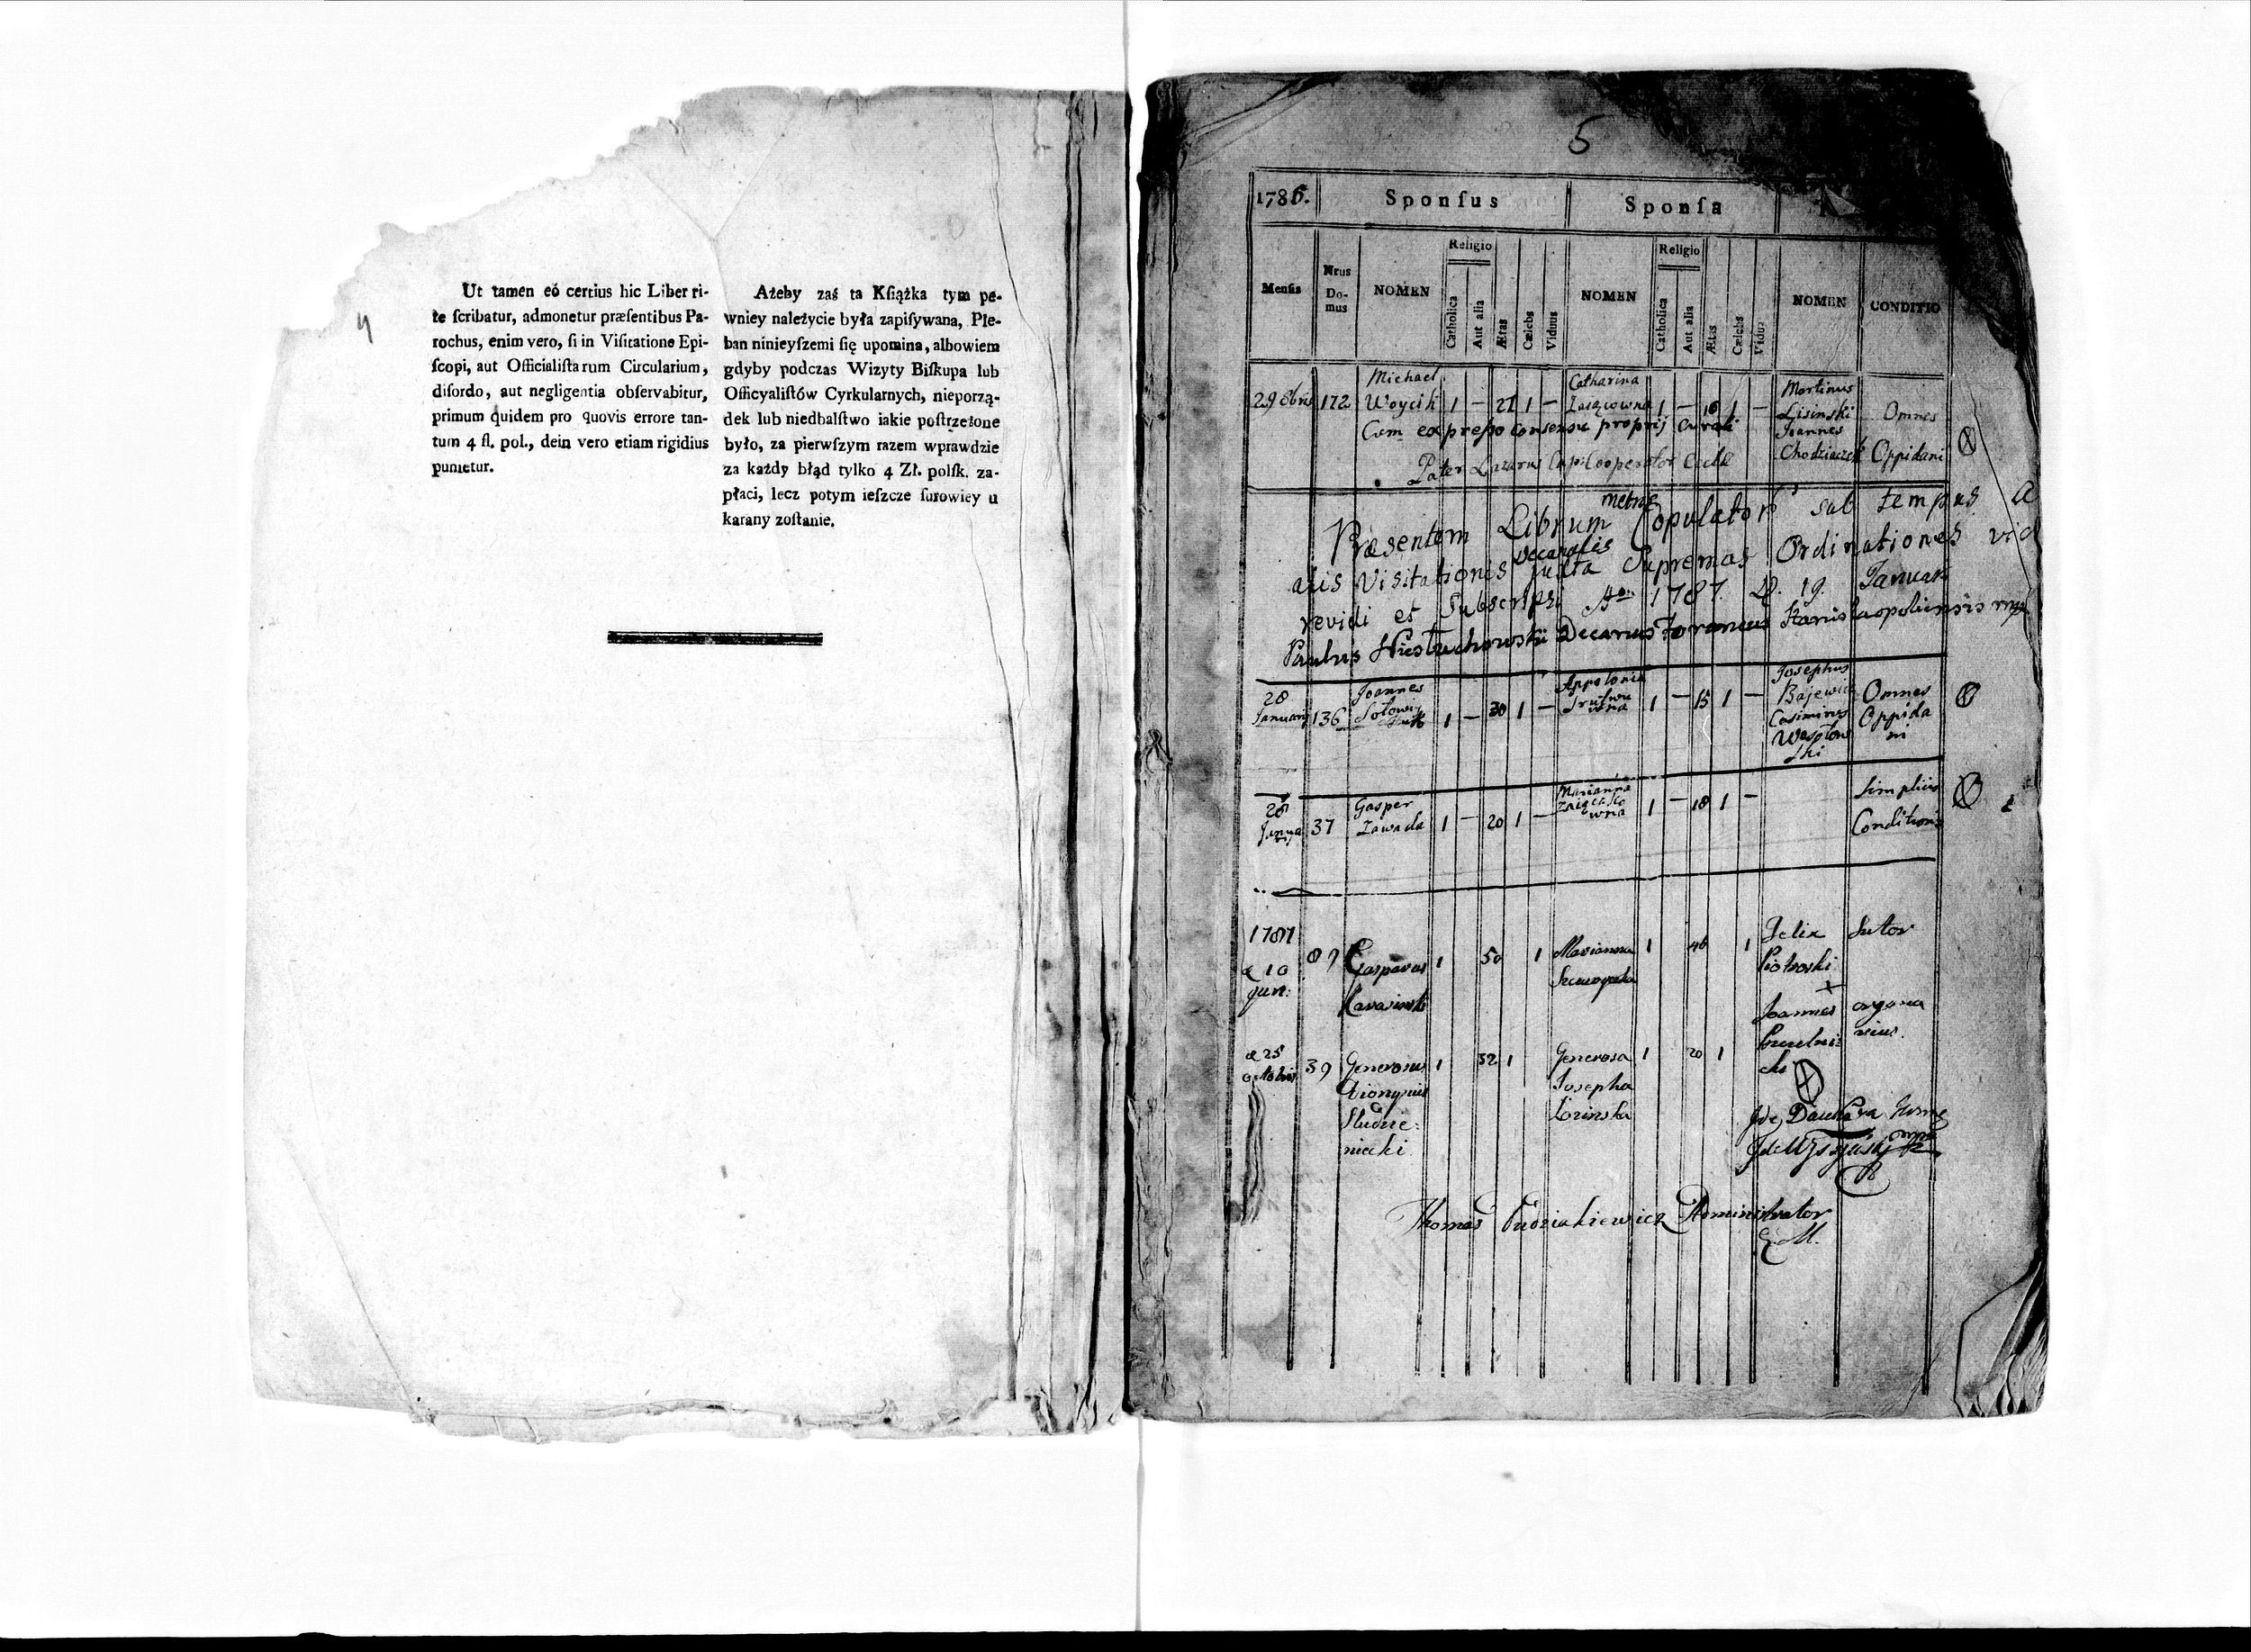 4
Ut tamen eó certius hic Liber ri-
te ſcribatur, admonetur præſentibus Pa-
rochus, enim vero, ſi in Viſitatione Epi-
ſcopi, aut Officialiſtarum Circularium,
diſordo, aut negligentia obſervabitur,
primum quidem pro quovis errore tan-
tum 4 fl. pol., dein vero etiam rigidius
punietur.
Ażeby zaś ta Kſiążka tym pe-
wniey należycie była zapiſywana, Ple-
ban ninieyſzemi ſię upomina, albowiem
gdyby podczas Wizyty Biſkupa lub
Officyaliſtów Cyrkularnych, nieporzą-
dek lub niedbalſtwo iakie poſtrzeżone
było, za pierwſzym razem wprawdzie
za każdy błąd tylko 4 Zł. polſk. za-
płaci, lecz potym ieſzcze ſurowiey u
karany zoſtanie.
5
1786. Sponſus Sponſa
Menſis Nrus Do- mus NOMEN Religio Catholica Aut alia Ætas Cælebs Viduus NOMEN Religio Catholica Aut alia Ætas Cælebs Vidua NOMEN CONDITIO
29 8bris 172 Michael Woycik 1 – 21 1 – Catharina 1 – 16 1 – Martinus Lisinski Joannes Omnes Oppidani
Cum expresso consensu proprij Curati
Pater Lazarus Cooperator
Præsentem Librum metric Copulator sub tempus
alis Visitationis Decanalis juxta Supremas Ordinationes
revidi et Subscripsi Ao 1787. D. 19. Januarii
Paulus Decanus foraneus Stanislaopoliensis mp
28 Januarij 136 Joannes 1 – 30 1 – Appolonia 1 – 15 1 – Josephus Bajewicz Casimirus Wesołowski Omnes Oppidani
28 Januarij 37 Gasper Zawada 1 – 20 1 – Marianna 1 – 18 1 – Simplicis Conditionis
1787 d 10 Jun: 89 Gasparus Karasinski 1 50 1 Marianna 1 46 1 Felix Piotroski Sutor
Joannes organarius.
d 25 octobris 39 Generosus Dionysius Studzieniecki 1 32 1 Generosa Josepha Łozinska 1 20 1
Thomas Administrator
E. M.